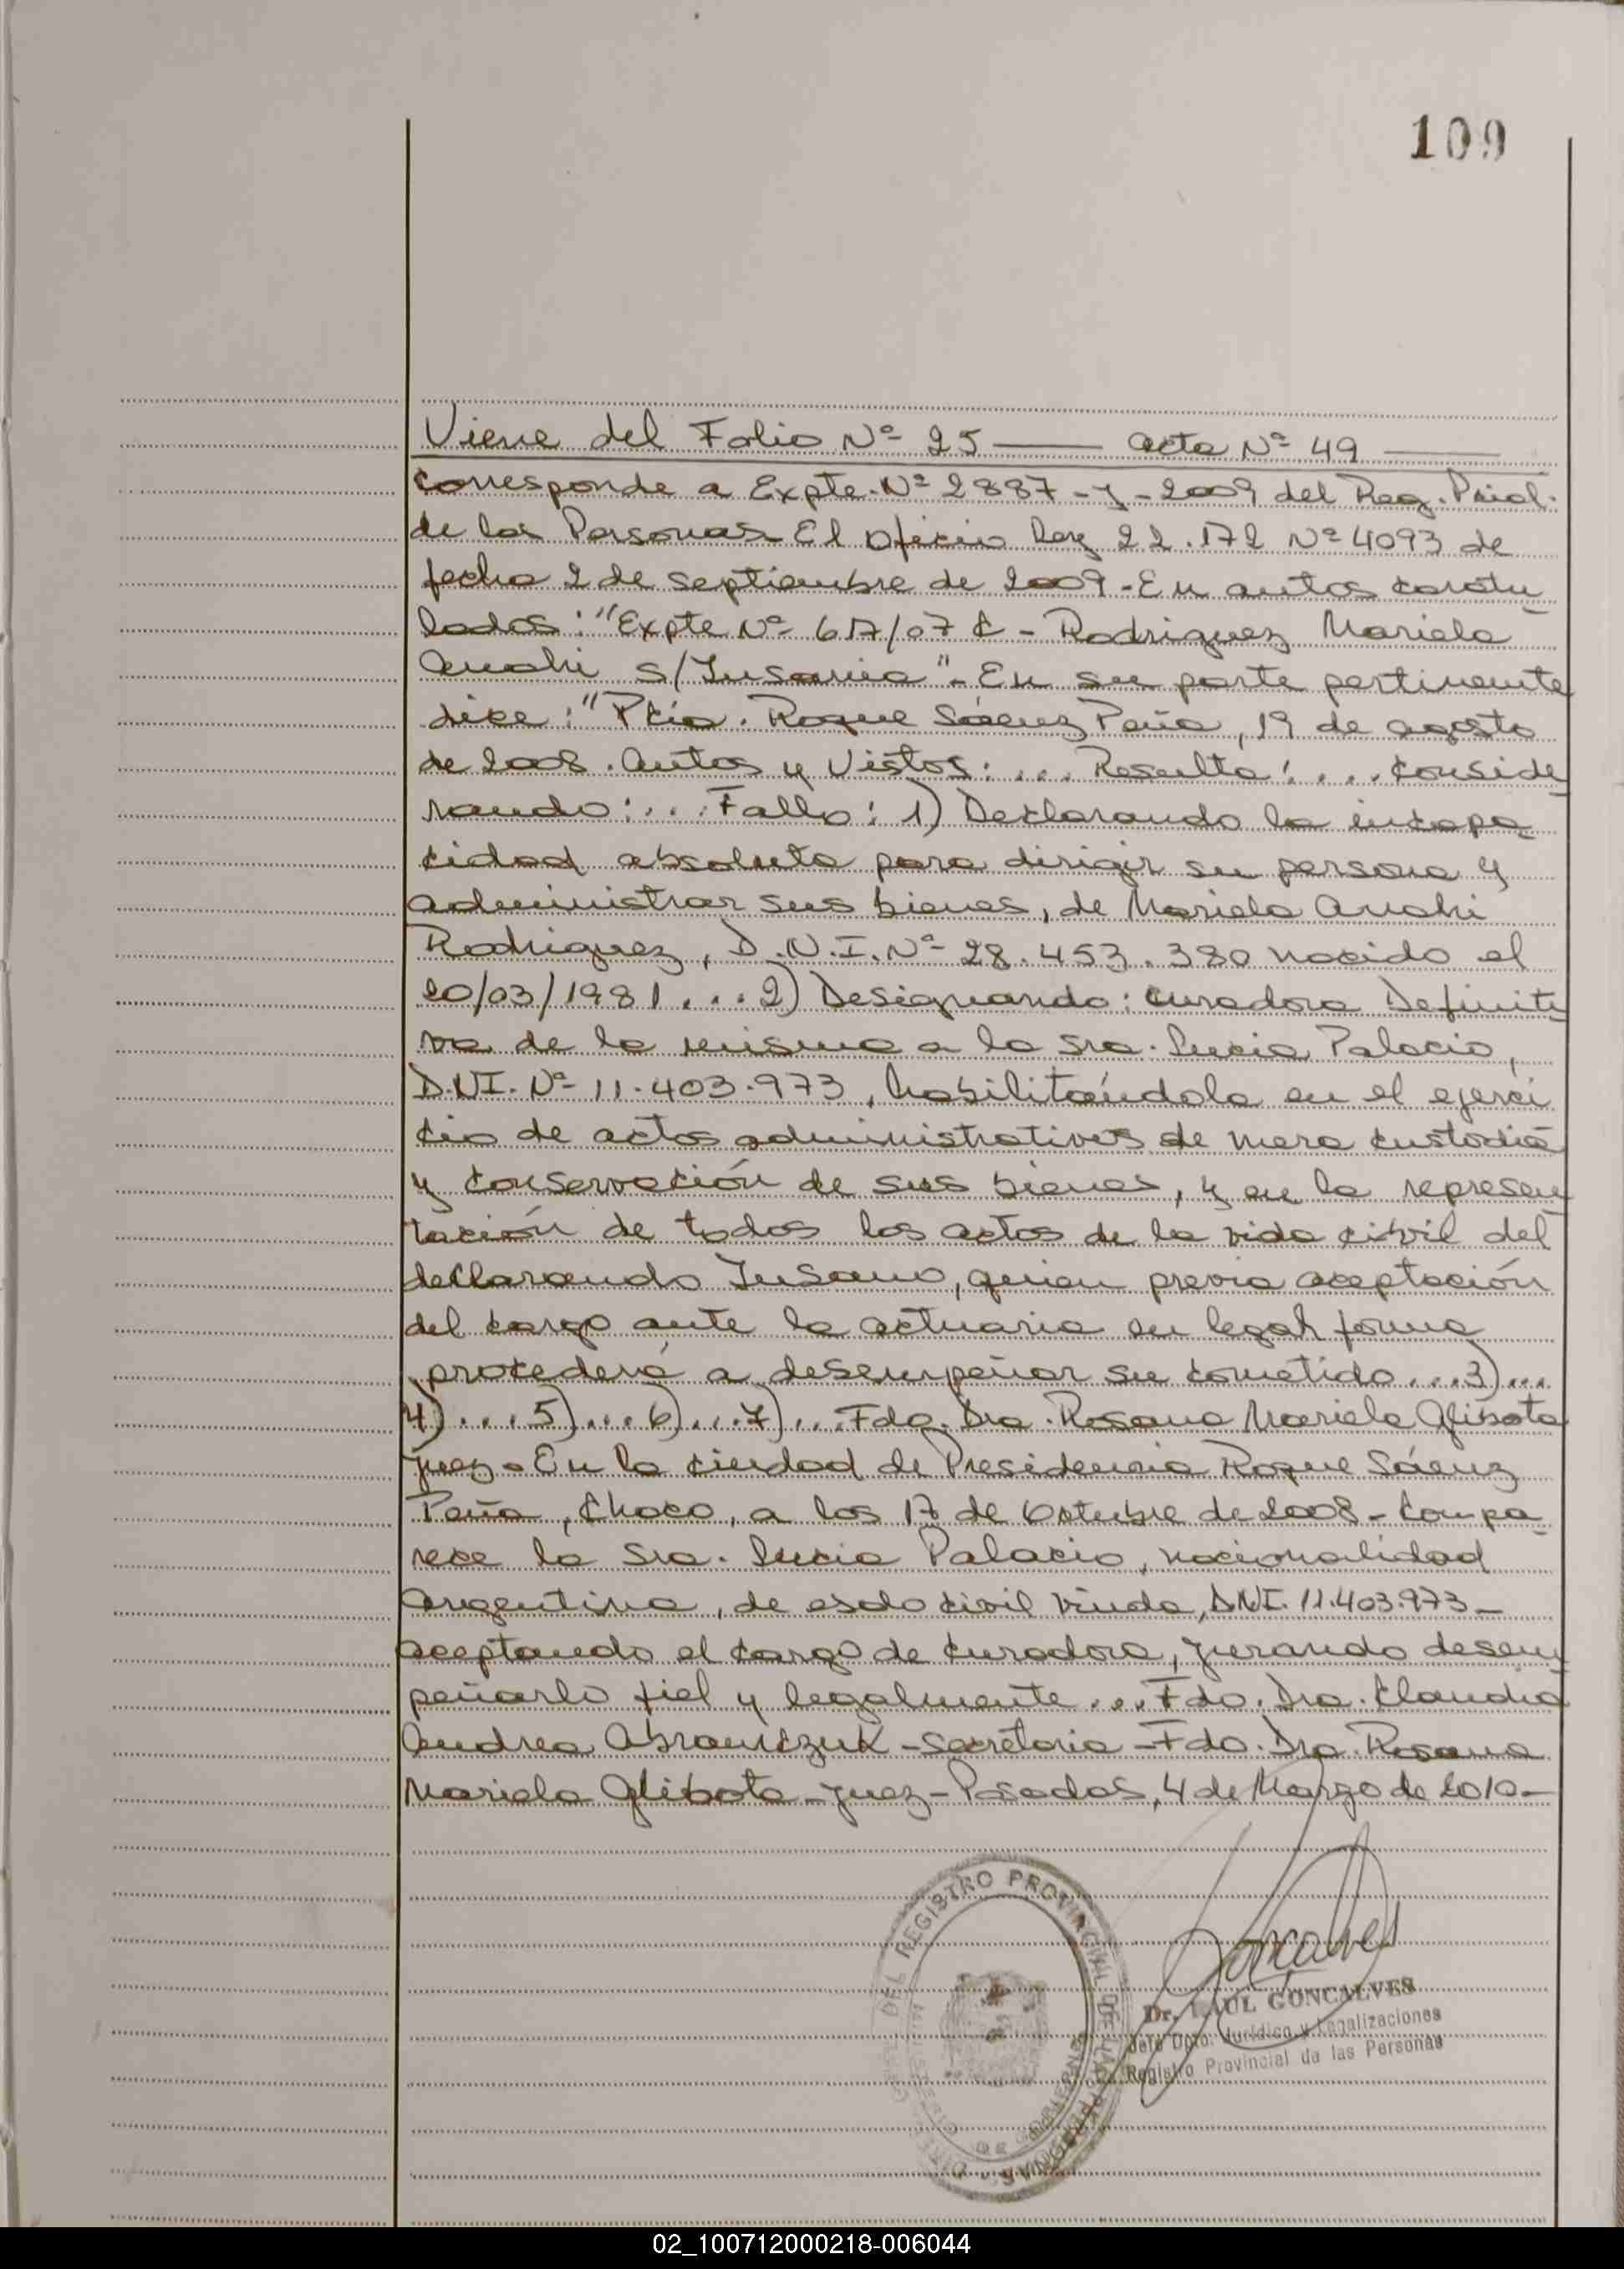 109
Viene del Folio Nº 25 —— Acta Nº 49 ——
Corresponde a Expte. Nº 2887-J-2009 del Reg. Pcial.
de las Personas El Oficio Ley 22.172 Nº 4093 de
fecha 2 de Septiembre de 2009 - En autos caratu
lados: "Expte Nº 617/07 C - Rodriguez Mariela
Anahi s/Insania" - En su parte pertinente
dice: "Pcia. Roque Sáenz Peña, 19 de agosto
de 2008. Autos y Vistos: ... Resulta: ... Conside
rando: ... Fallo: 1) Declarando la incapa
cidad absoluta para dirigir su persona y
administrar sus bienes, de Mariela Anahi
Rodriguez, D.N.I. Nº 28.453.380 nacido el
20/03/1981 ... 2) Designando: Curadora Definiti
va de la misma a la Sra. Lucia Palacio,
D.NI. Nº 11.403.973, habilitándola en el ejerci
cio de actos administrativos de mera custodia
y conservación de sus bienes, y en la represen
tación de todos los actos de la vida civil del
declarando Insano, quien previa aceptación
del cargo ante la actuaria en legal forma
procederá a desempeñar su cometido ... 3) ...
4) ... 5) ... 6) ... 7) ... Fdo. Dra. Rosana Mariela Glibota
Juez - En la ciudad de Presidencia Roque Sáenz
Peña, Chaco, a los 17 de Octubre de 2008 - Compa
rece la Sra. Lucia Palacio, nacionalidad
Argentina, de esdo civil viuda, DNI. 11.403.973 -
aceptando el cargo de curadora, jurando desem
peñarlo fiel y legalmente ... Fdo. Dra. Claudia
Andrea Abramczuk - Secretaria - Fdo. Dra. Rosana
Mariela Glibota - Juez - Posadas, 4 de Marzo de 2010 -
DEL REGISTRO PROVINCIAL DE LAS PERSONAS
Dr. RAUL GONCALVES
Jefe Dpto. Jurídico y Legalizaciones
Registro Provincial de las Personas
02_100712000218-006044